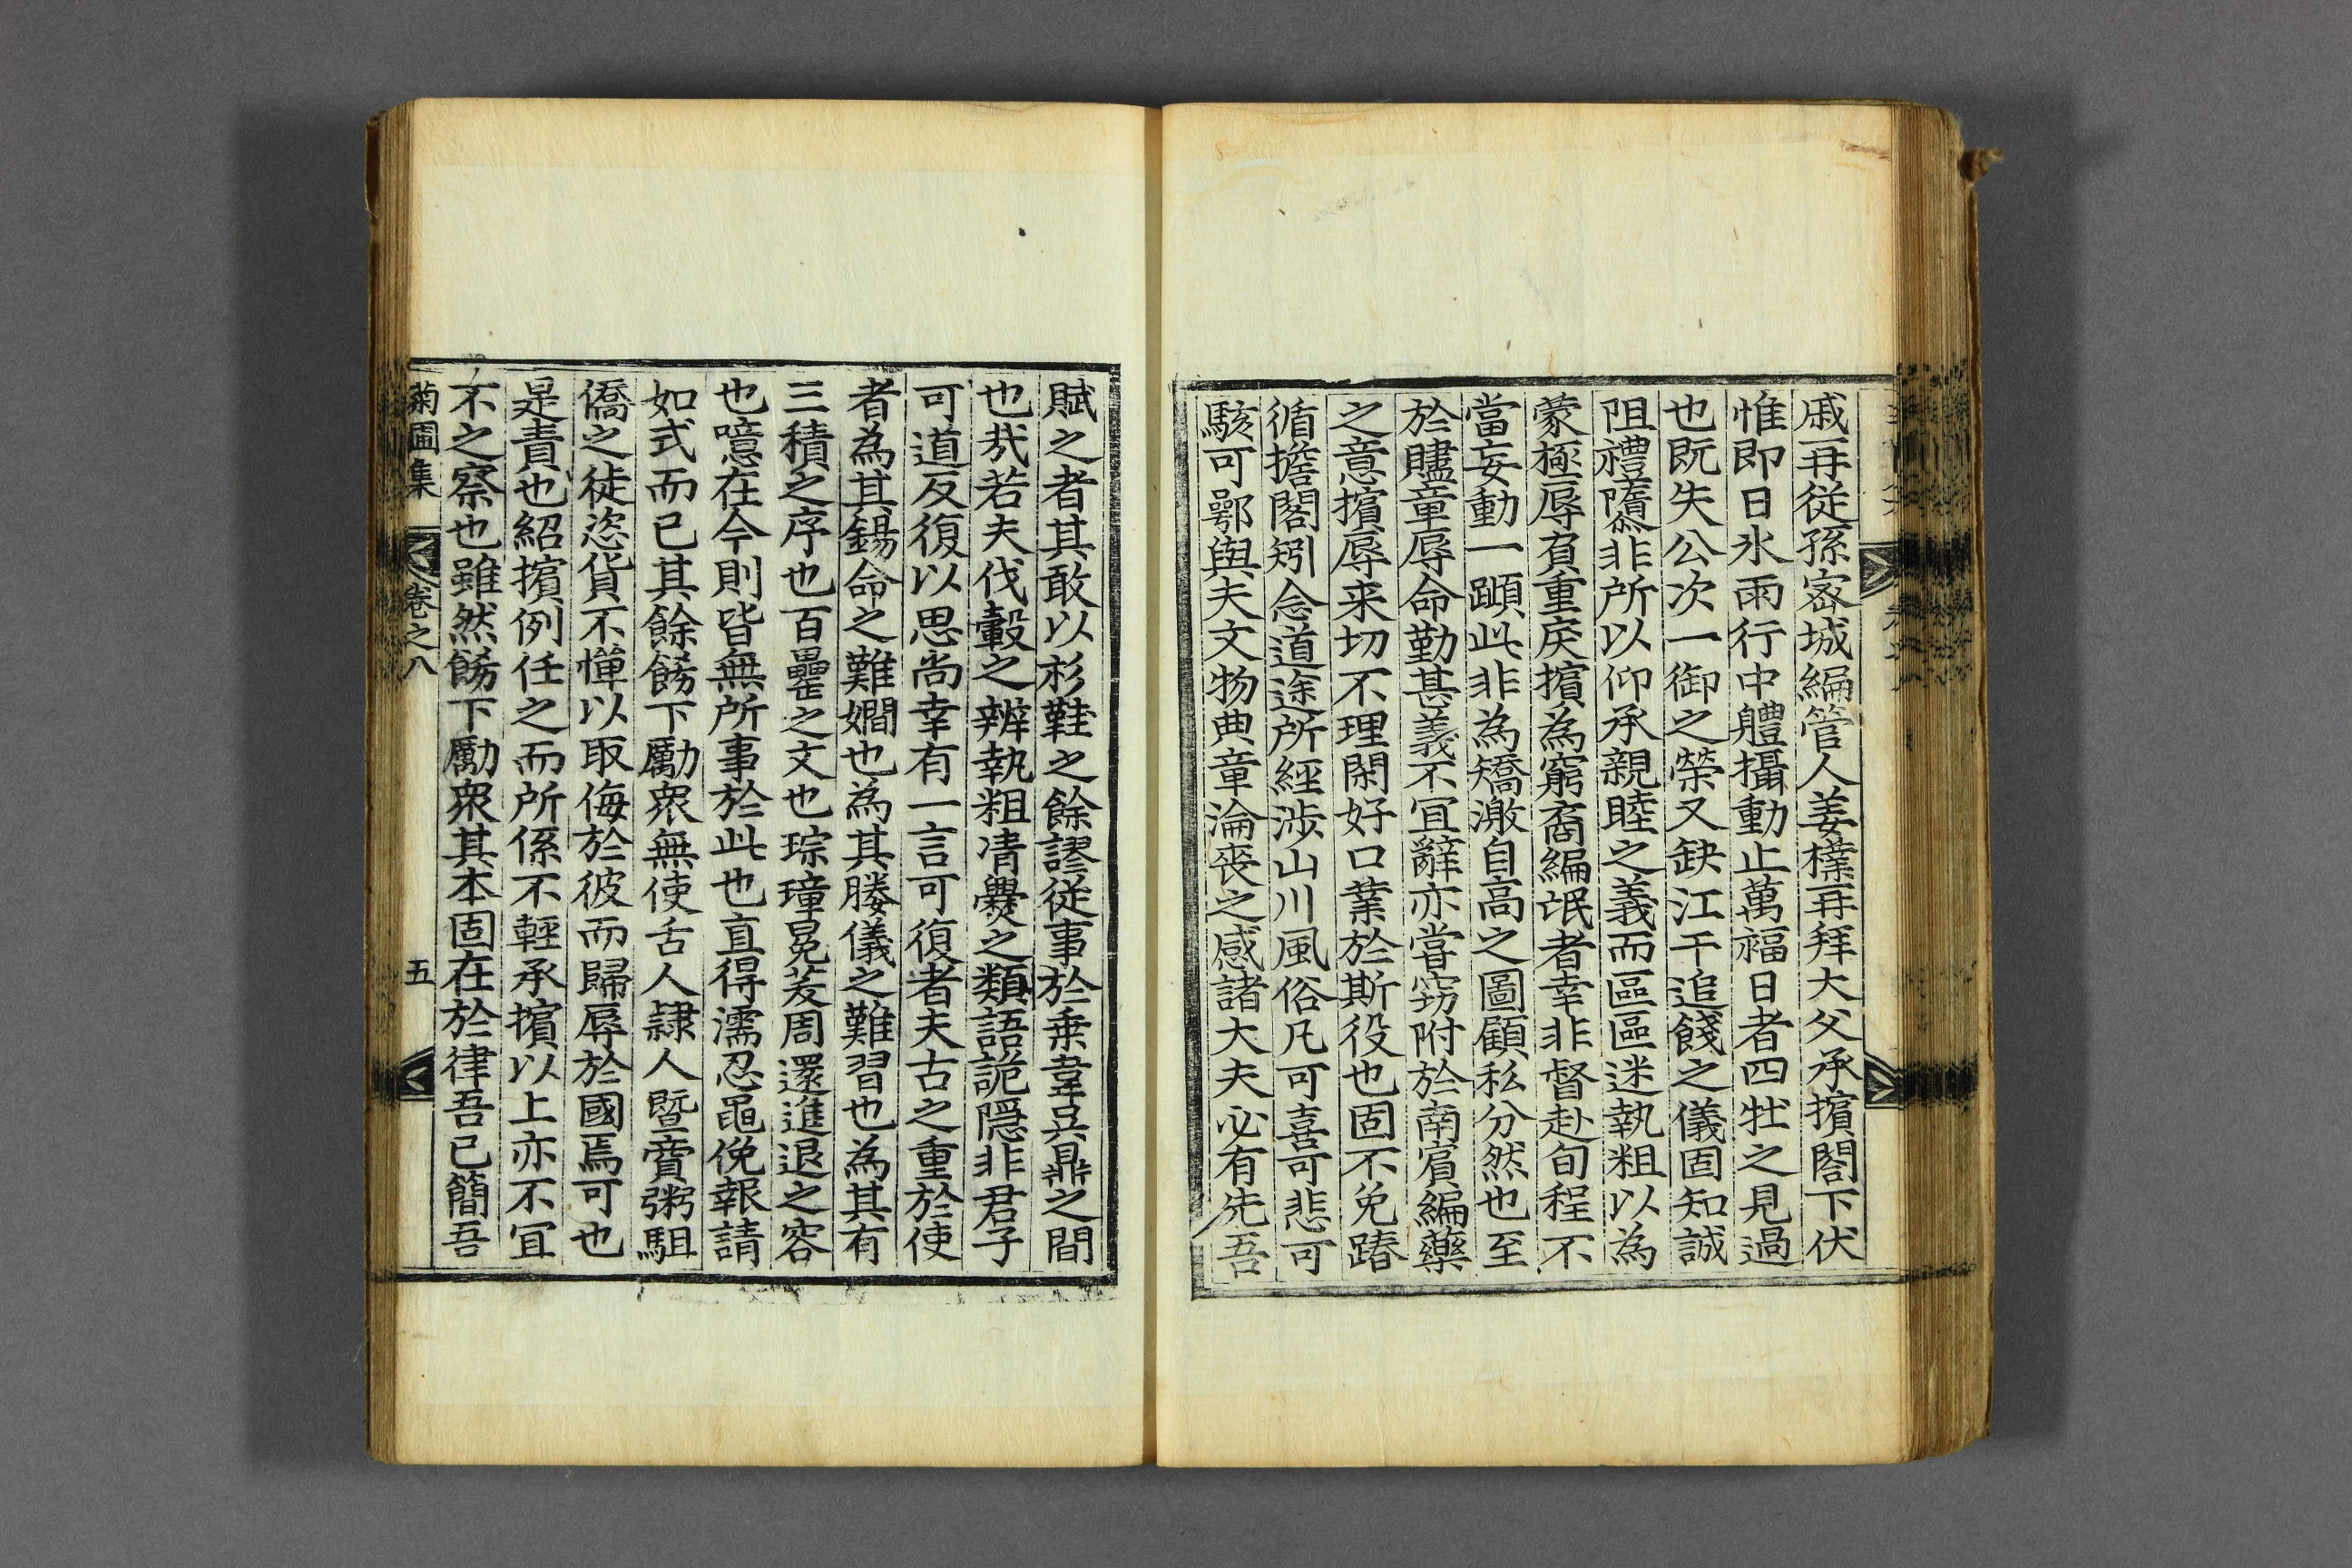 戚再從孫密城編管人姜樸再拜大父承擯閤下伏
惟即日氷雨行中軆攝動止萬福日者四牡之見過
也旣失公次一御之榮又缺江干追餞之儀固知誠
阻禮隳非所以仰承親睦之義而區區迷執粗以為
蒙極辱負重戾擯為窮裔編氓者幸非督赴旬程不
當妄動一蹞此非為矯激自高之圖顧私分然也至
於贐章辱命勤甚義不冝辭亦甞窃附於南賔編藥
之意擯辱来切不理閑好口業於斯役也固不免踳
循擔閣矧念道途所經涉山川風俗凡可喜可悲可
駭可鄂與夫文物典章淪喪之感諸大夫必有先吾
賦之者其敢以衫鞋之餘謬從事於乗韋兵鼎之間
也㦲若夫伐轂之辨執粗凊爨之類語詭隱非君子
可道反復以思尚幸有一言可復者夫古之重於使
者為其錫命之難嫺也為其賸儀之難習也為其有
三積之序也百罍之文也琮璋冕茇周還進退之容
也噫在今則皆無所事於此也直得濡忍黽俛報請
如式而已其餘餝下勵衆無使舌人隷人曁賣粥駔
僑之徒恣貨不憚以取侮於彼而歸辱於國焉可也
是責也紹擯例任之而所係不輕承擯以上亦不冝
不之察也雖然餝下勵衆其本固在於律吾已簡吾
菊圃集 卷之八 五